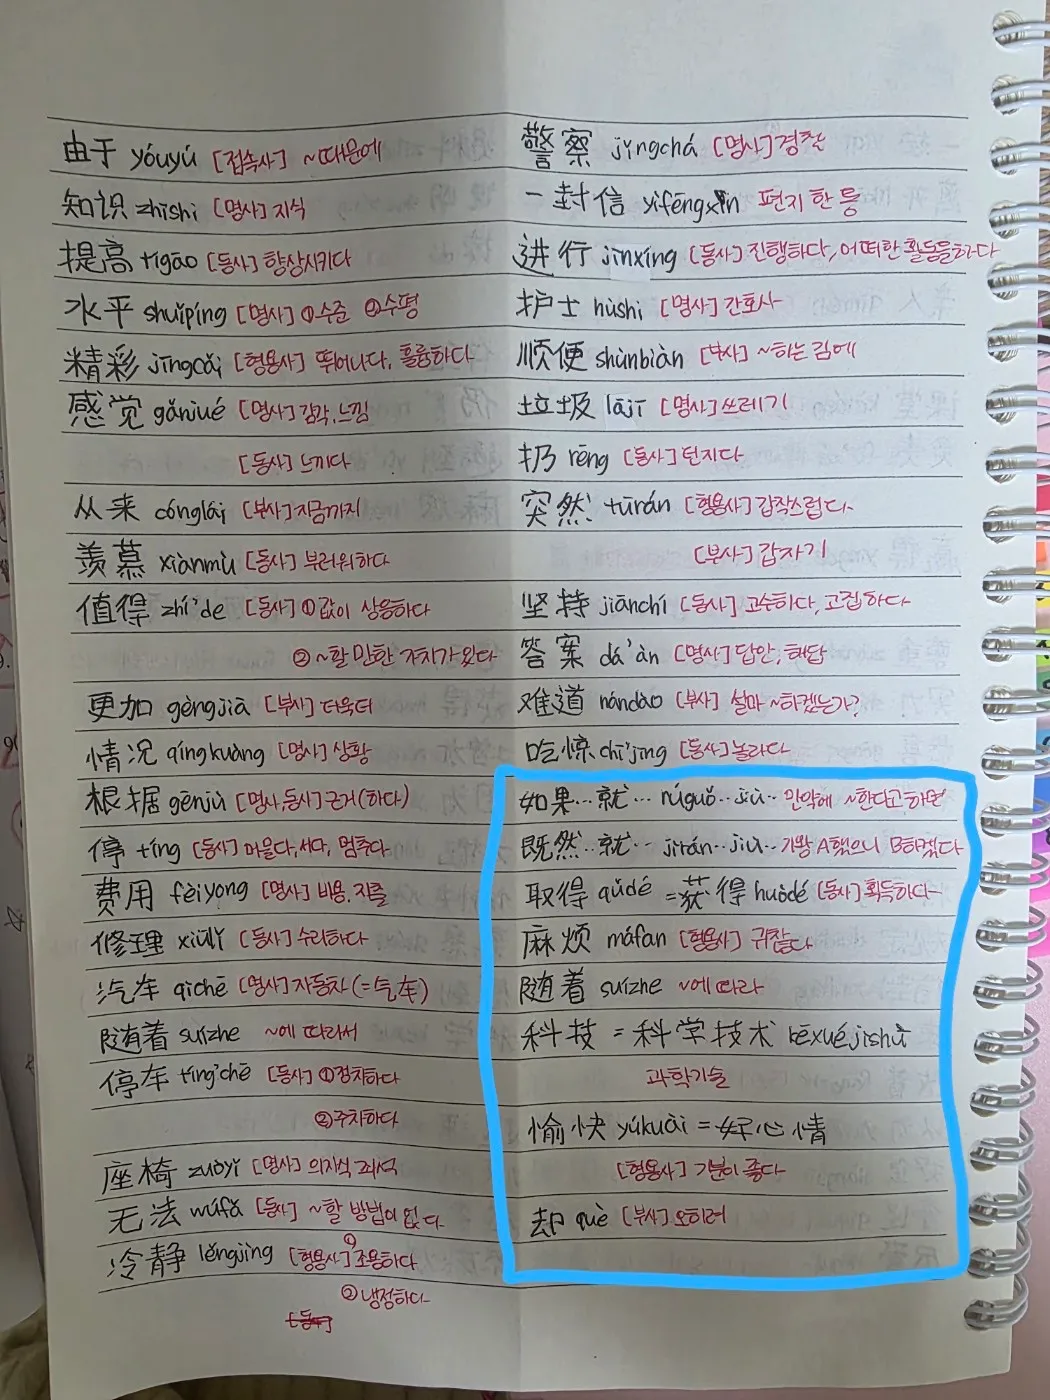 由于 yóuyú [접속사] ~때문에
知识 zhīshi [명사] 지식
提高 tígāo [동사] 향상시키다
水平 shuǐpíng [명사] ①수준 ②수평
精彩 jīngcǎi [형용사] 뛰어나다, 훌륭하다
感觉 gǎnjué [명사] 감각, 느낌
[동사] 느끼다
从来 cónglái [부사] 지금까지
羡慕 xiànmù [동사] 부러워하다
值得 zhí'de [동사] ①값이 상응하다
② ~할 만한 가치가 있다
更加 gèngjiā [부사] 더욱더
情况 qíngkuàng [명사] 상황
根据 gēnjù [명사, 동사] 근거(하다)
停 tíng [동사] 머물다, 서다, 멈추다
费用 fèiyong [명사] 비용, 지출
修理 xiūlǐ [동사] 수리하다
汽车 qìchē [명사] 자동차 (=气车)
随着 suízhe ~에 따라서
停车 tíng'chē [동사] ①정차하다
②주차하다
座椅 zuòyǐ [명사] 의자식 좌석
无法 wúfǎ [동사] ~할 방법이 없다
冷静 lěngjìng [형용사] ①조용하다
② 냉정하다
警察 jǐngchá [명사] 경찰
一封信 yìfēngxìn 편지 한 통
进行 jìnxíng [동사] 진행하다, 어떠한 활동을하다
护士 hùshi [명사] 간호사
顺便 shùnbiàn [부사] ~하는 김에
垃圾 lājī [명사] 쓰레기
扔 rēng [동사] 던지다
突然 tūrán [형용사] 갑작스럽다
[부사] 갑자기
坚持 jiānchí [동사] 고수하다, 고집하다
答案 dá'àn [명사] 답안, 해답
难道 nándào [부사] 설마 ~하겠는가?
吃惊 chī'jīng [동사] 놀라다
如果…就… rúguǒ…jiù… 만약에 ~한다고 하면
既然…就… jìrán…jiù… 기왕 A했으니 B하겠다
取得 qǔdé =获得 huòdé [동사] 획득하다
麻烦 máfan [형용사] 귀찮다
随着 suízhe ~에 따라
科技 = 科学技术 kēxuéjìshù
과학기술
愉快 yúkuài =好心情
[형용사] 기분이 좋다
却 què [부사] 오히려